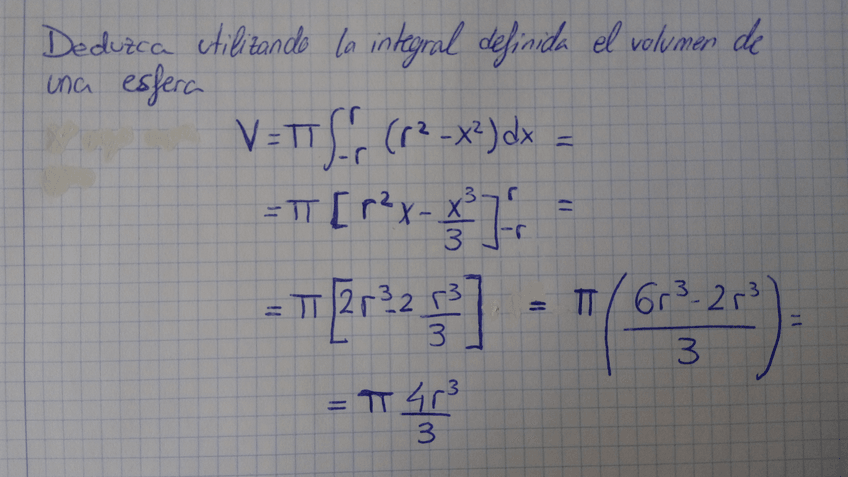 Deduzca utilizando la integral definida el volumen de
una esfera
V = π ∫_{-r}^{r} (r² - x²) dx =
= π [ r²x - x³/3 ]_{-r}^{r} =
= π [ 2r³ - 2 r³/3 ] = π ( (6r³ - 2r³)/3 ) =
= π 4r³/3